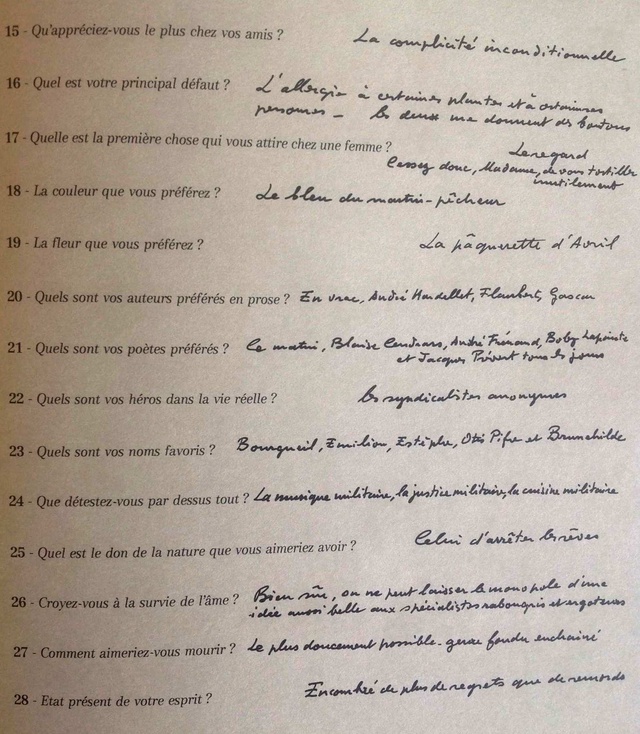 15 - Qu'appréciez-vous le plus chez vos amis ? La complicité inconditionnelle
16 - Quel est votre principal défaut ? L'allergie à certaines plantes et à certaines
personnes - les deux me donnent des boutons
17 - Quelle est la première chose qui vous attire chez une femme ? Le regard
Cessez donc, Madame, de vous tortiller
inutilement
18 - La couleur que vous préférez ? Le bleu du martin-pêcheur
19 - La fleur que vous préférez ? La pâquerette d'Avril
20 - Quels sont vos auteurs préférés en prose ? En vrac, André Hardellet, Flaubert, Gascar
21 - Quels sont vos poètes préférés ? Le matin, Blaise Cendrars, André Frénaud, Boby Lapointe
et Jacques Prévert tous les jours
22 - Quels sont vos héros dans la vie réelle ? les syndicalistes anonymes
23 - Quels sont vos noms favoris ? Bourgueil, Emilion, Estèphe, Otis Pifre et Brunehilde
24 - Que détestez-vous par dessus tout ? La musique militaire, la justice militaire, la cuisine militaire
25 - Quel est le don de la nature que vous aimeriez avoir ? Celui d'arrêter les rêves
26 - Croyez-vous à la survie de l'âme ? Bien sûr, on ne peut laisser le monopole d'une
idée aussi belle aux spécialistes rabougris et ergoteurs
27 - Comment aimeriez-vous mourir ? Le plus doucement possible - genre fondu enchaîné
28 - Etat présent de votre esprit ? Encombré de plus de regrets que de remords